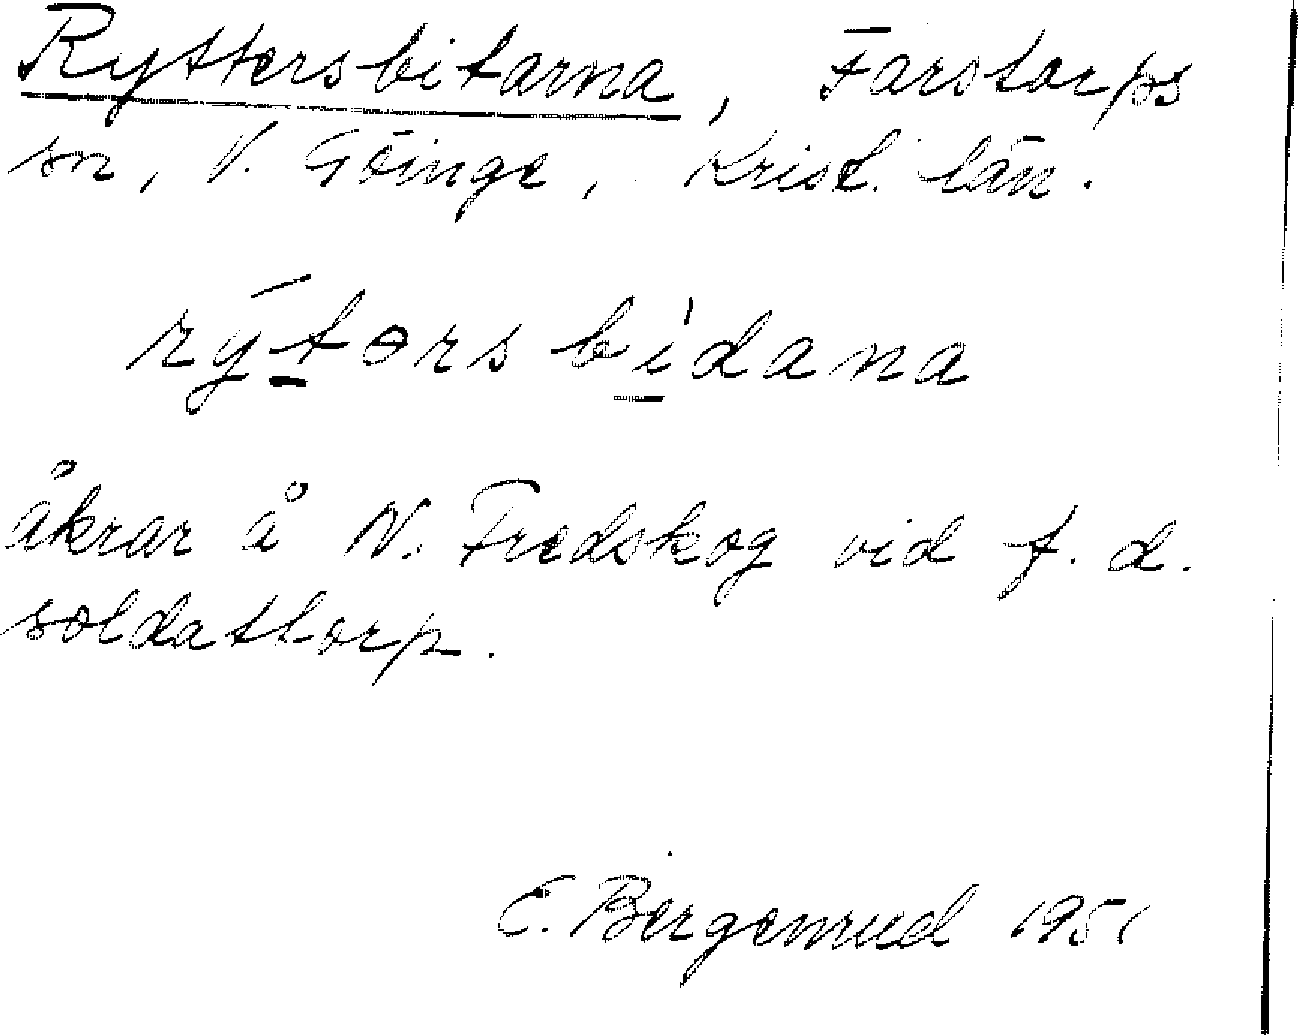 Ryttersbitarna, Farstorps
sn, V. Göinge, Krist. län.
rýtərsbìdana
åkrar å N. Fredskog vid f. d.
soldattorp.
E. Bergenrud 1951